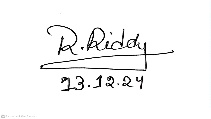 R. Riddy
13.12.24